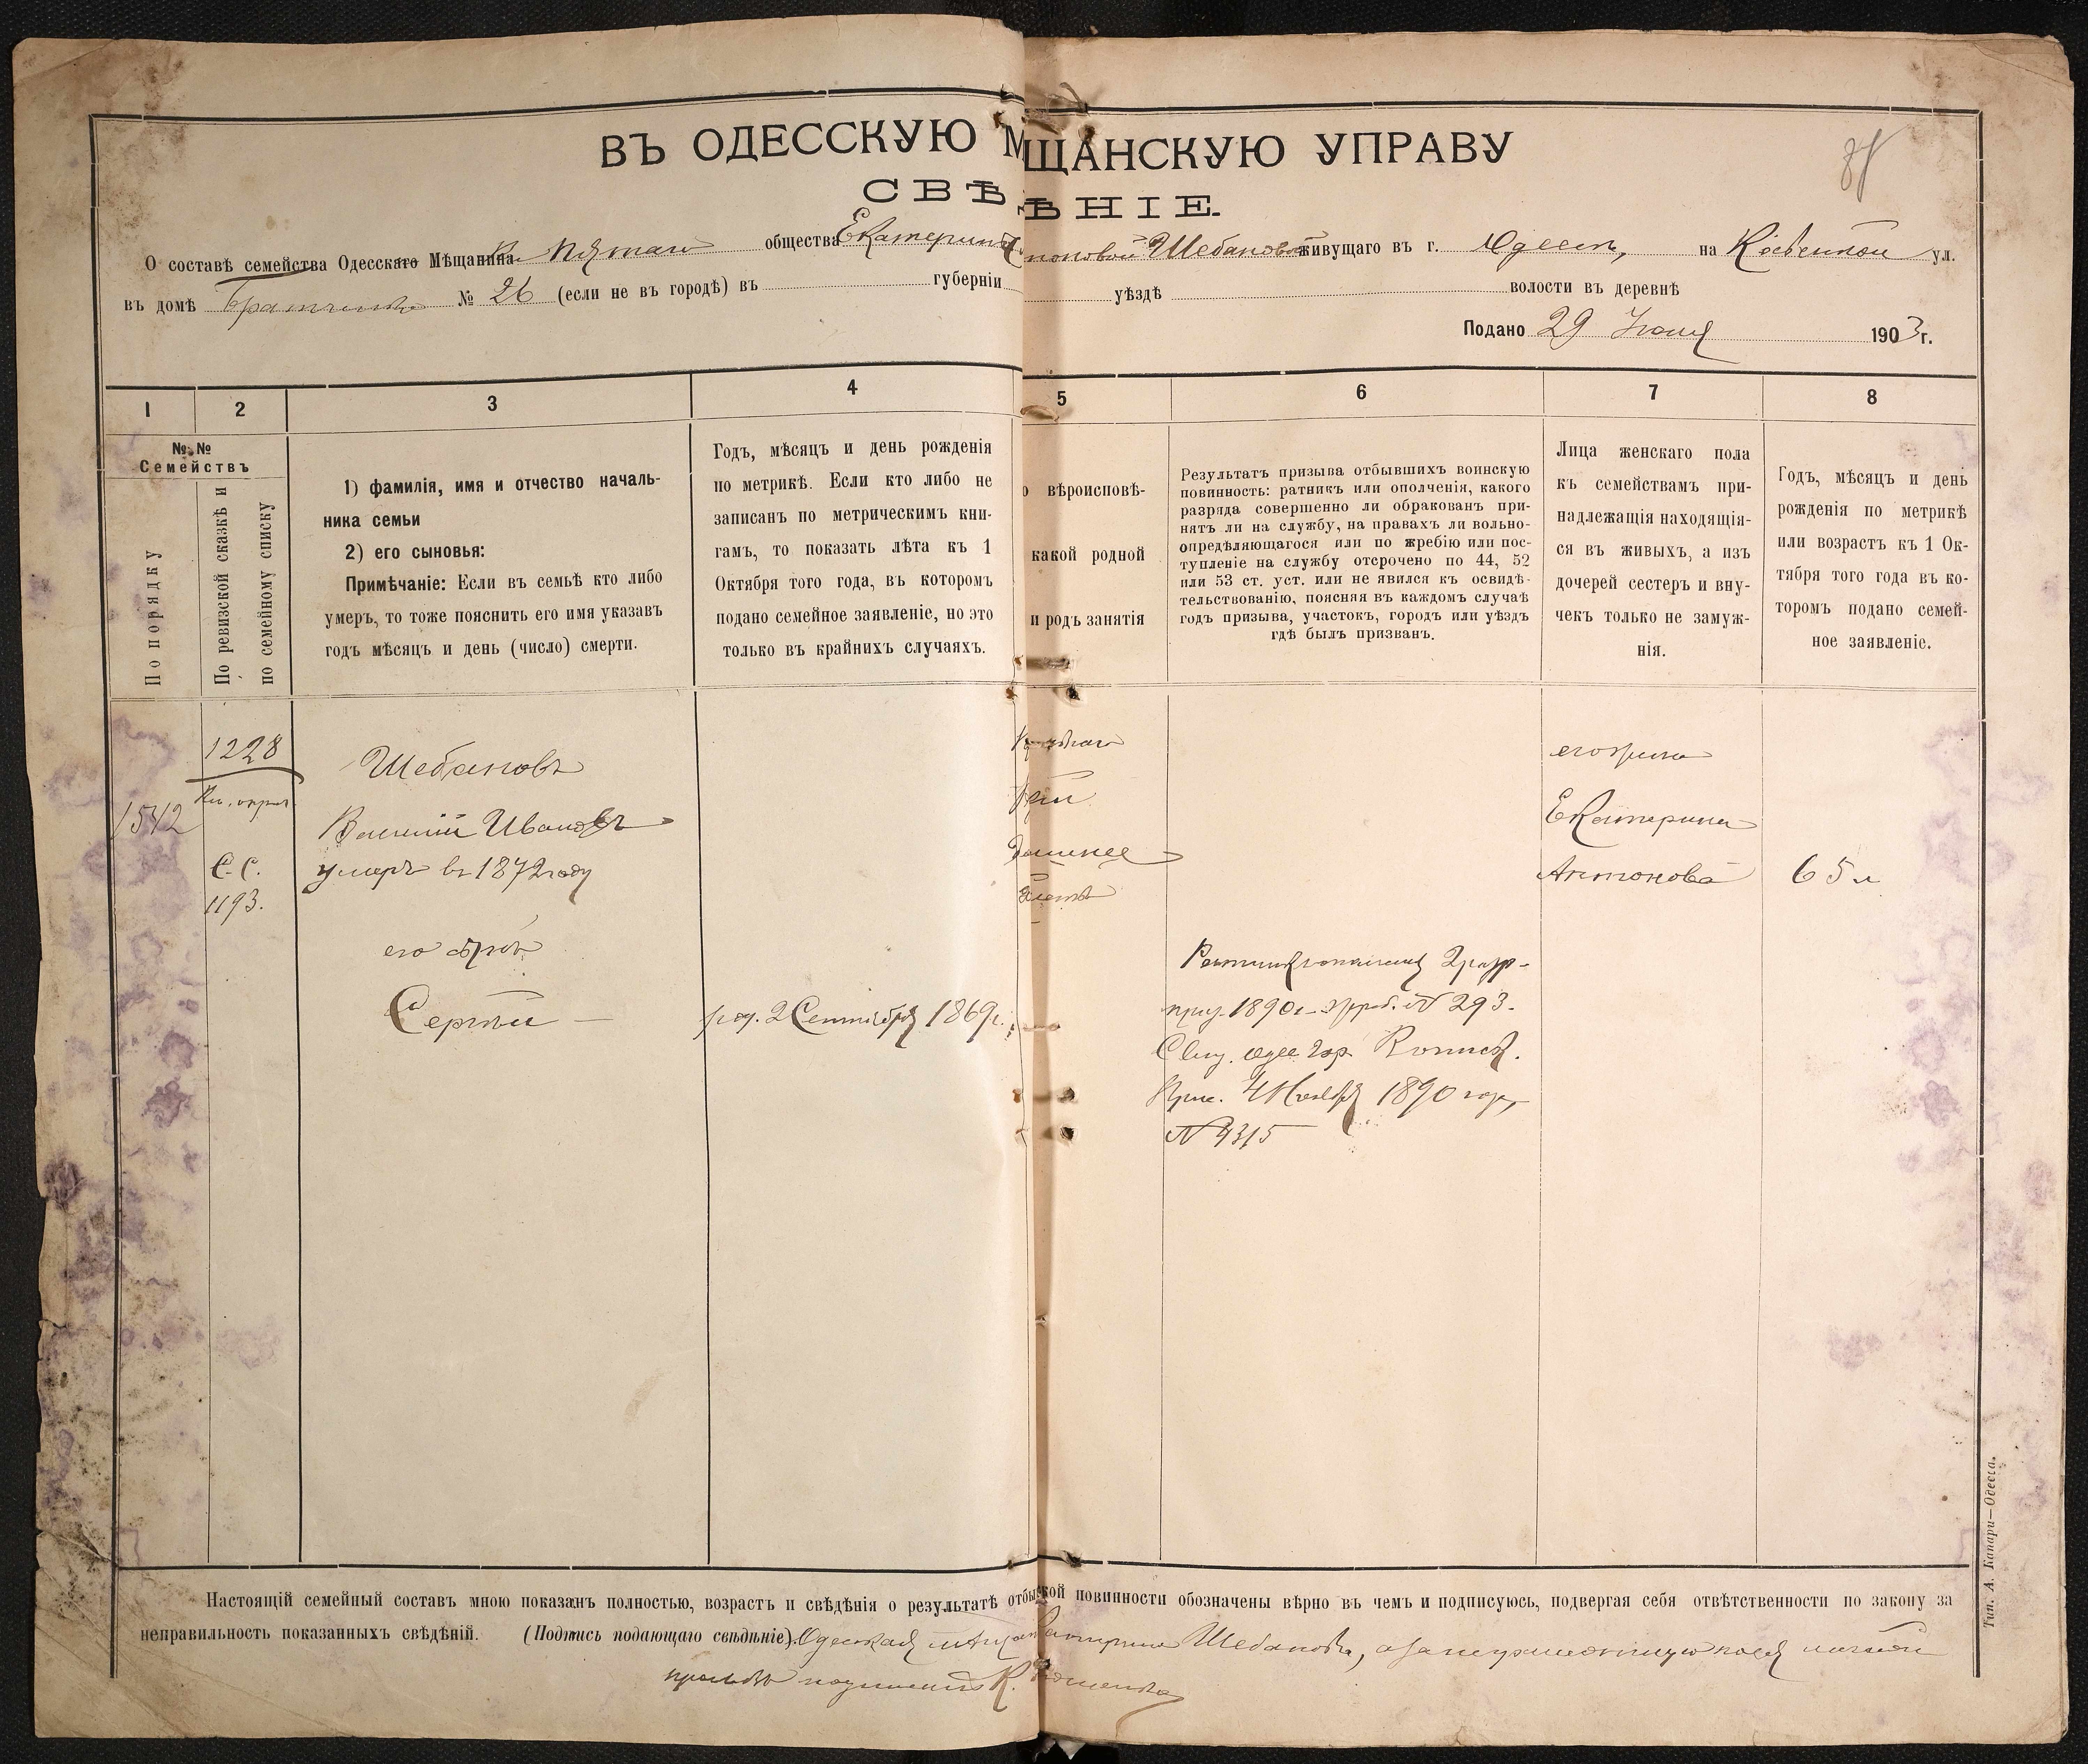 ВЪ ОДЕССКУЮ М ЩАНСКУЮ УПРАВУ
СВѢ ѢНІЕ.
О составѣ семейства Одесскаго Мѣщанина пятаго общества Екатерины поновой Шебановой живущаго въ г. Одессѣ, на Косвенной ул.
въ домѣ № 26 (если не въ городѣ) въ губерніи уѣздѣ волости въ деревнѣ
Подано 29 1903 г.
1 2 3 4 5 6 7 8
№ № Семействъ
По порядку
По ревизской сказкѣ и
по семейному списку
1) фамилія, имя и отчество началь-
ника семьи
2) его сыновья:
Примѣчаніе: Если въ семьѣ кто либо
умеръ, то тоже пояснить его имя указавъ
годъ мѣсяцъ и день (число) смерти.
Годъ, мѣсяцъ и день рожденія
по метрикѣ. Если кто либо не
записанъ по метрическимъ кни-
гамъ, то показать лѣта къ 1
Октября того года, въ которомъ
подано семейное заявленіе, но это
только въ крайнихъ случаяхъ.
о вѣроисповѣ-
какой родной
и родъ занятія
Результатъ призыва отбывшихъ воинскую
повинность: ратникъ или ополченія, какого
разряда совершенно ли обракованъ при-
нятъ ли на службу, на правахъ ли вольно-
опредѣляющагося или по жребію или пос-
тупленіе на службу отсрочено по 44, 52
или 53 ст. уст. или не явился къ освидѣ-
тельствованію, поясняя въ каждомъ случаѣ
годъ призыва, участокъ, городъ или уѣздъ
гдѣ былъ призванъ.
Лица женскаго пола
къ семействамъ при-
надлежащія находящія-
ся въ живыхъ, а изъ
дочерей сестеръ и вну-
чекъ только не замуж-
нія.
Годъ, мѣсяцъ и день
рожденія по метрикѣ
или возрастъ къ 1 Ок-
тября того года въ ко-
торомъ подано семей-
ное заявленіе.
1228
1542
С.С.
1193.
Шебановъ
Василій Ивановъ
умеръ въ 1872 году
его сынъ
Сергѣй
род. 2 Сентября 1869 г.
Ратникъ ополченія 2 разр-
приз. 1890 г. № 293.
Свид. Одес. гор. Воинск.
Прис. Ноября 1890 года,
№ 4315
его жена
Екатерина
Антонова
65 л
Настоящій семейный составъ мною показанъ полностью, возрастъ и свѣдѣнія о результатѣ отбы ской повинности обозначены вѣрно въ чемъ и подписуюсь, подвергая себя отвѣтственности по закону за
неправильность показанныхъ свѣдѣній. (Подпись подающаго свѣдѣніе). Одесская Шебанова, а за неграмотную по ея личной
просьбѣ К.
Тип. А. Капари—Одесса.